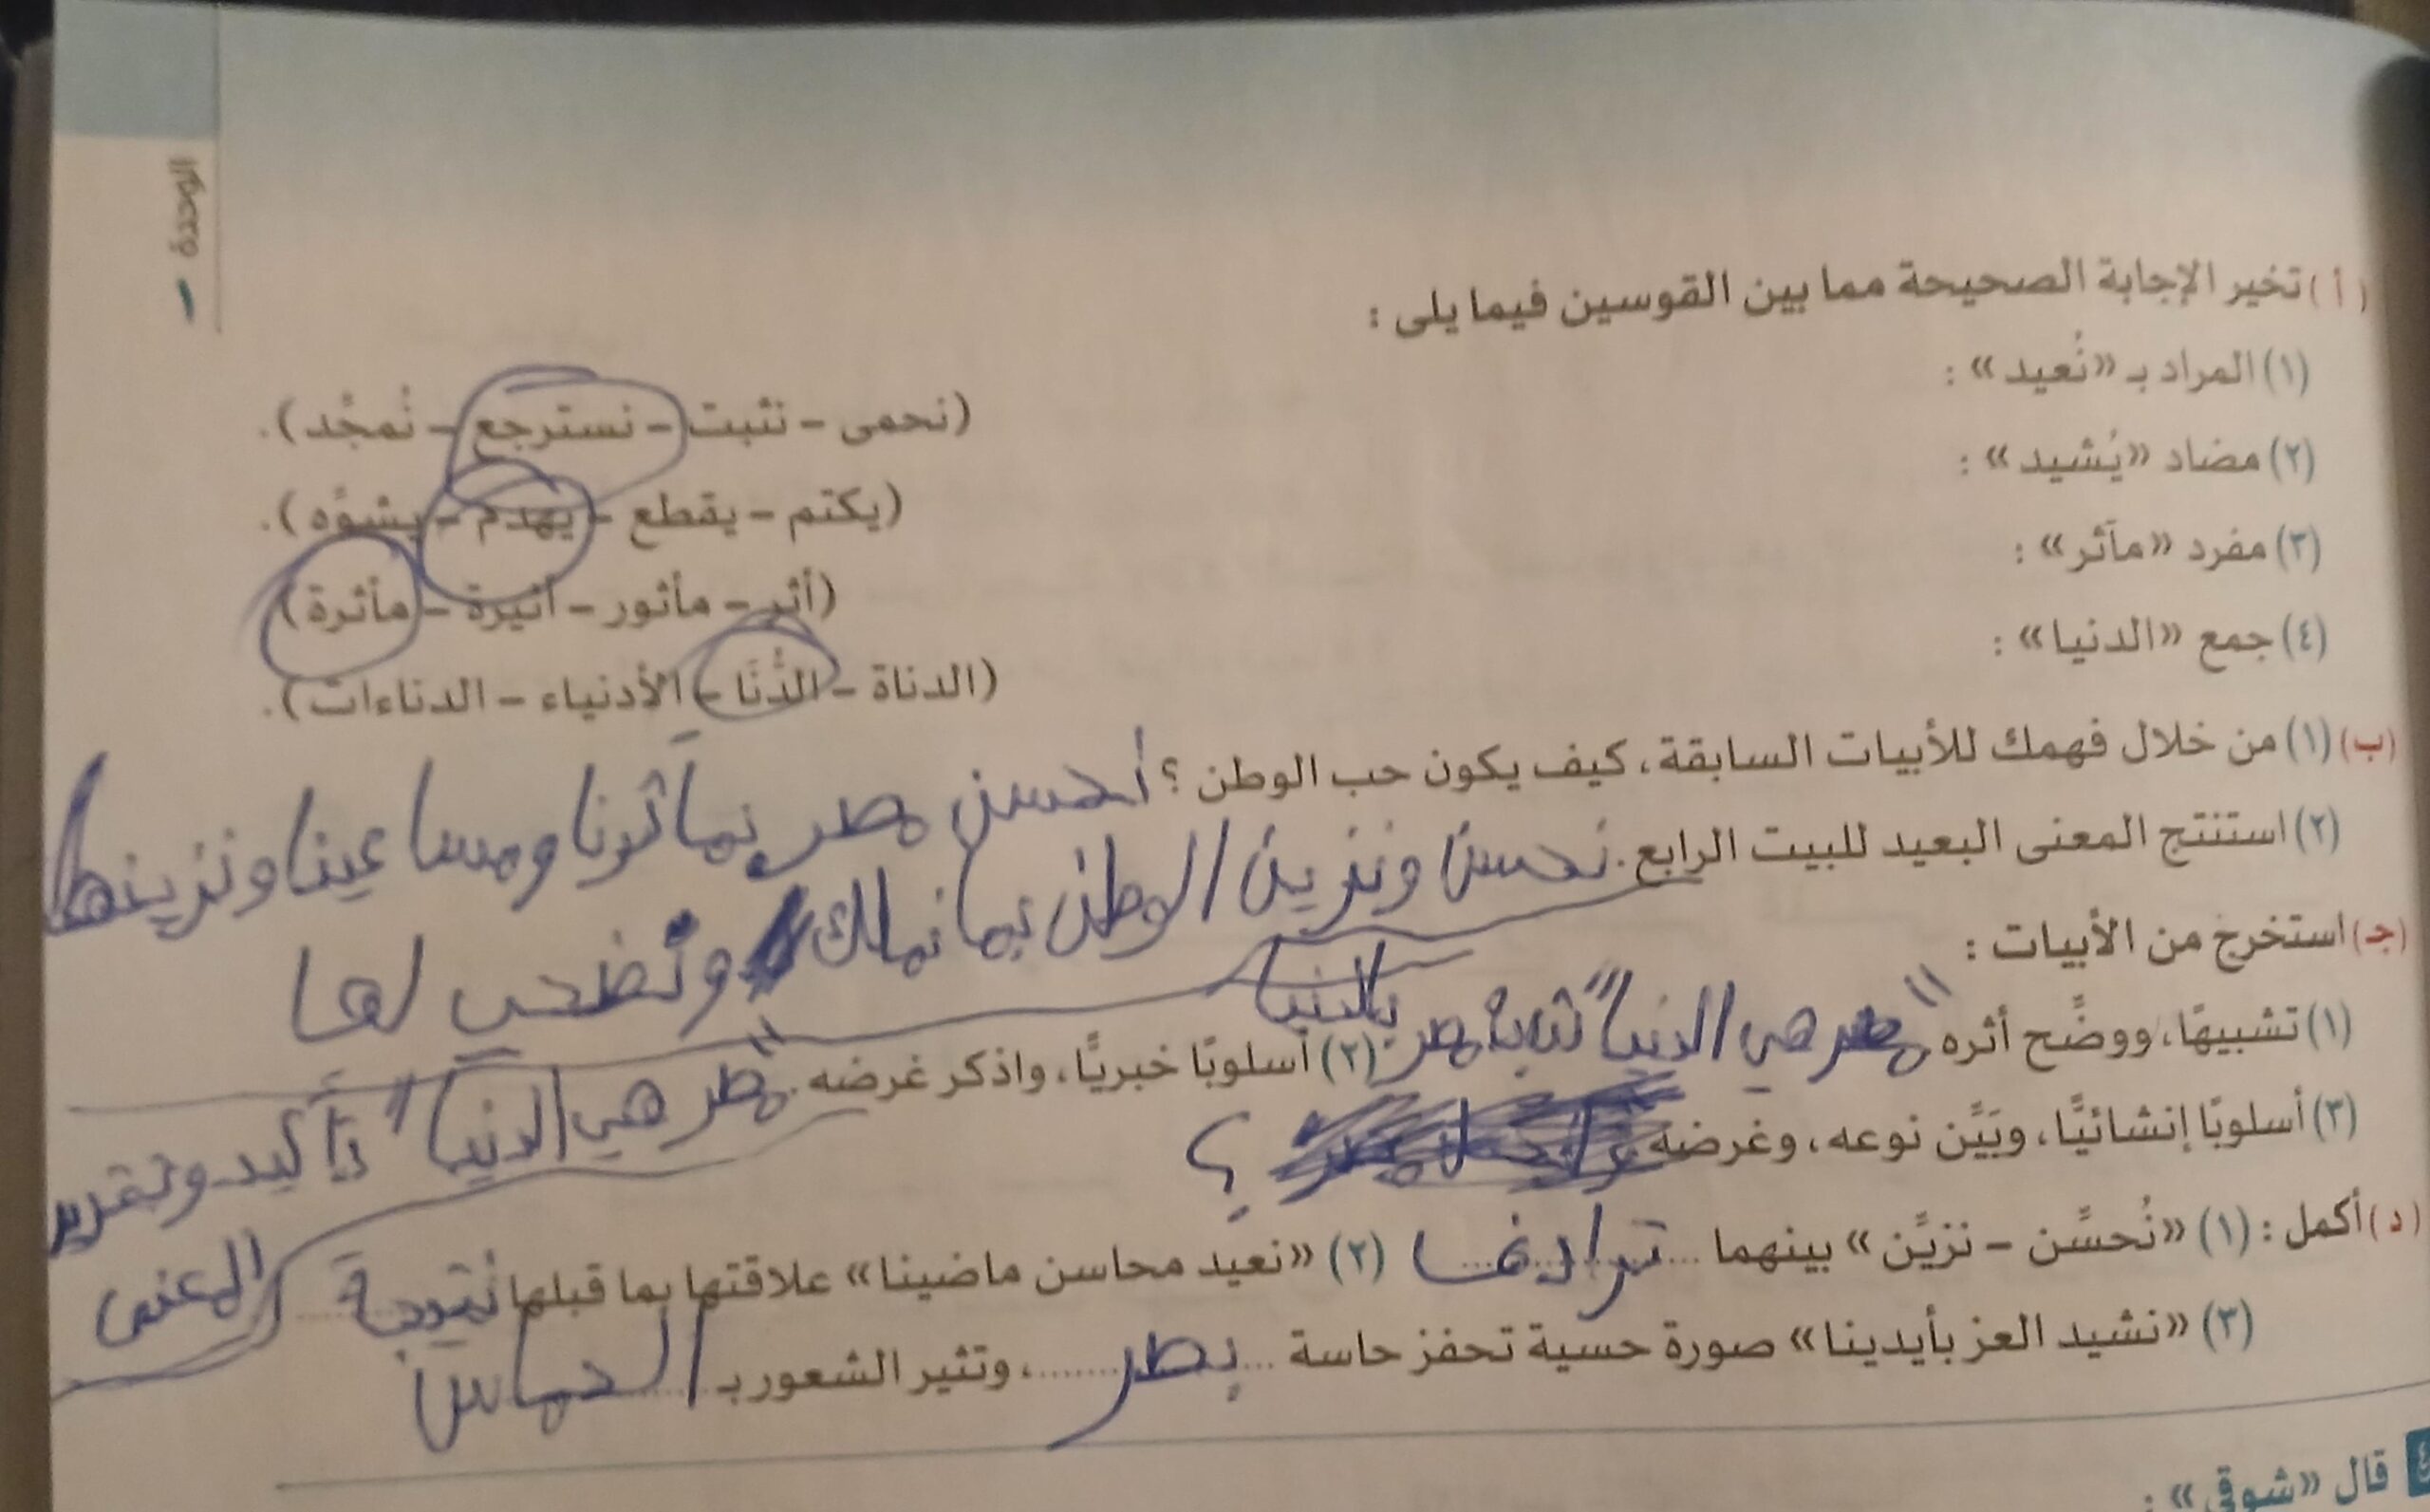 الوحدة
١
(أ) تخير الإجابة الصحيحة مما بين القوسين فيما يلى :
(١) المراد بـ «نُعيد» :
(نحمى - نثبت - نسترجع - نُمجِّد).
(٢) مضاد «يُشيد» :
(يكتم - يقطع - يهدم - يشوِّه).
(٣) مفرد «مآثر» :
(أثر - مأثور - أثيرة - مأثرة)
(٤) جمع «الدنيا» :
(الدناة - الدُّنَا - الأدنياء - الدناءات).
(ب) (١) من خلال فهمك للأبيات السابقة، كيف يكون حب الوطن ؟ أحسن مصر بمآثرنا ومساعينا ونزينها
(٢) استنتج المعنى البعيد للبيت الرابع. نحسن ونزين الوطن بما نملك ونضحي لها
(جـ) استخرج من الأبيات :
(١) تشبيهًا، ووضِّح أثره "مصر هي الدنيا" شبه مصر بالدنيا
(٢) أسلوبًا خبريًّا، واذكر غرضه. "مصر هي الدنيا" تأكيد وتقرير المعنى
(٣) أسلوبًا إنشائيًّا، وبَيِّن نوعه، وغرضه ؟
(د) أكمل : (١) «نُحسِّن - نزيِّن» بينهما ... ترادف
(٢) «نعيد محاسن ماضينا» علاقتها بما قبلها نتيجة
(٣) «نشيد العز بأيدينا» صورة حسية تحفز حاسة ... بصر ......، وتثير الشعور بـ الحماس
٤ قال «شوقى» :